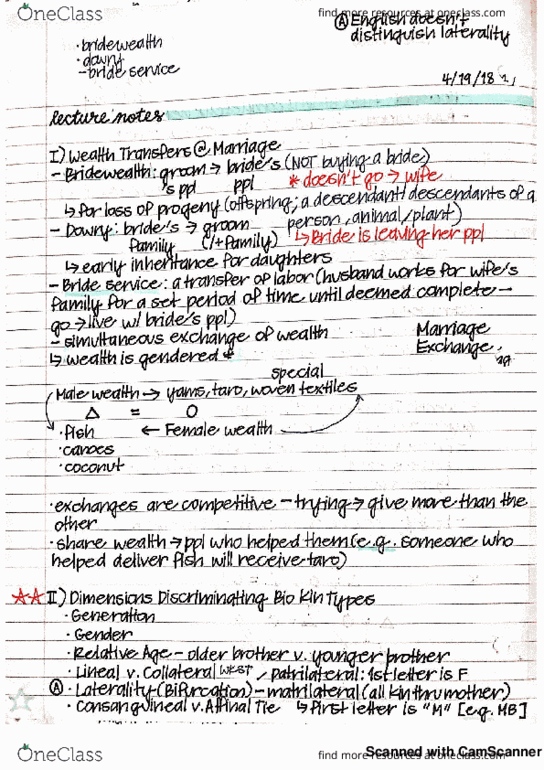 OneClass
find more resources at oneclass.com
Ⓐ English doesn't
distinguish laterality
·bridewealth
·dowry
-bride service
4/19/18
lecture notes
I) Wealth Transfers @ Marriage
- Bridewealth: groom → bride's (NOT buying a bride)
's ppl ppl * doesn't go → wife
↳ for loss of progeny (offspring; a descendant/descendants of a
person, animal/plant)
- Dowry: bride's → groom ↳ Bride is leaving her ppl
family (/+family)
↳ early inheritance for daughters
- Bride service: a transfer of labor (husband works for wife's
family for a set period of time until deemed complete -
go → live w/ bride's ppl)
- simultaneous exchange of wealth
↳ wealth is gendered
Marriage
Exchange
special
Male wealth → yams, taro, woven textiles
△ = O
·fish ← Female wealth
·canoes
·coconut
·exchanges are competitive - trying → give more than the
other
·share wealth → ppl who helped them (e.g. someone who
helped deliver fish will receive taro)
☆☆ II) Dimensions Discriminating Bio Kin Types
·Generation
·Gender
·Relative Age - older brother v. younger brother
·Lineal v. Collateral WEST patrilateral: 1st letter is F
Ⓐ ·Laterality (Bifurcation) - matrilateral (all kin thru mother)
·Consanguineal v. Affinal Tie ↳ first letter is "M" [e.g. MB]
OneClass
find more resources at oneclass.com
Scanned with CamScanner